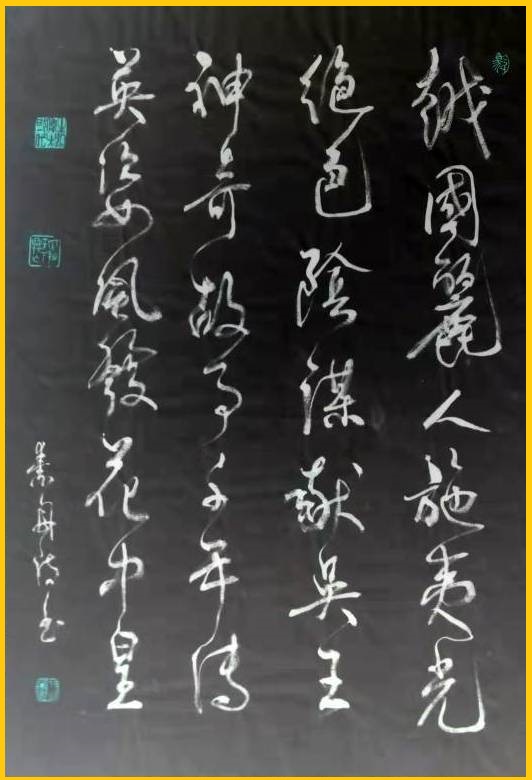 越國麗人施夷光
絕色陰謀獻吳王
神奇故事千年傳
英姿風發花中皇